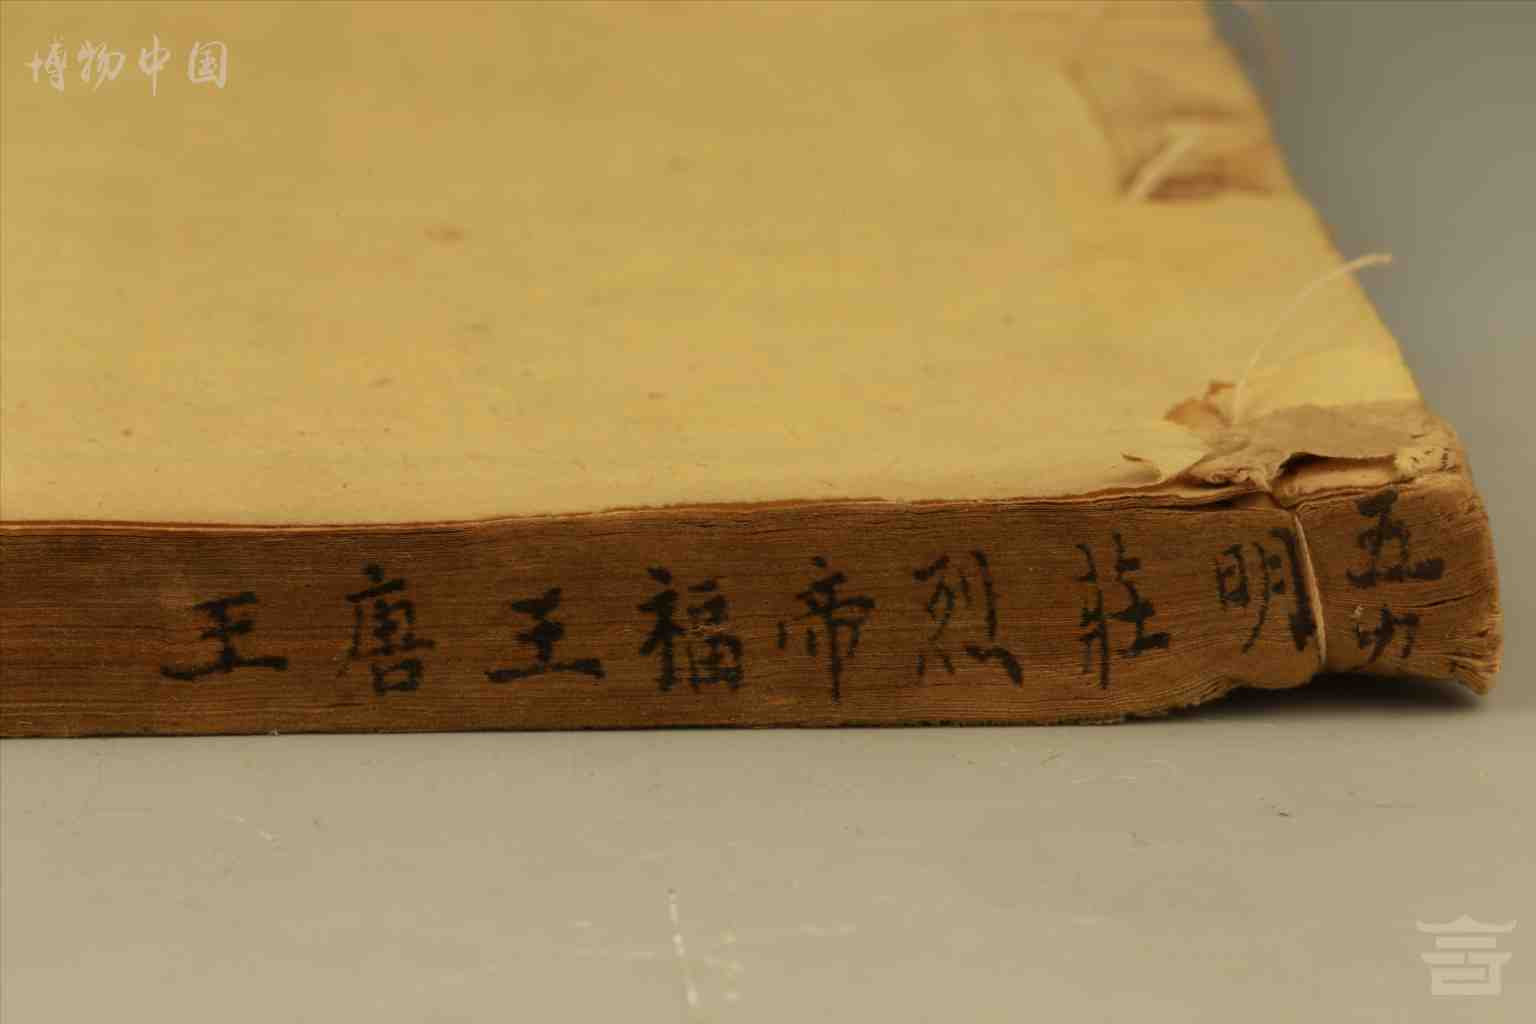 博物中国
五
明莊烈帝福王唐王